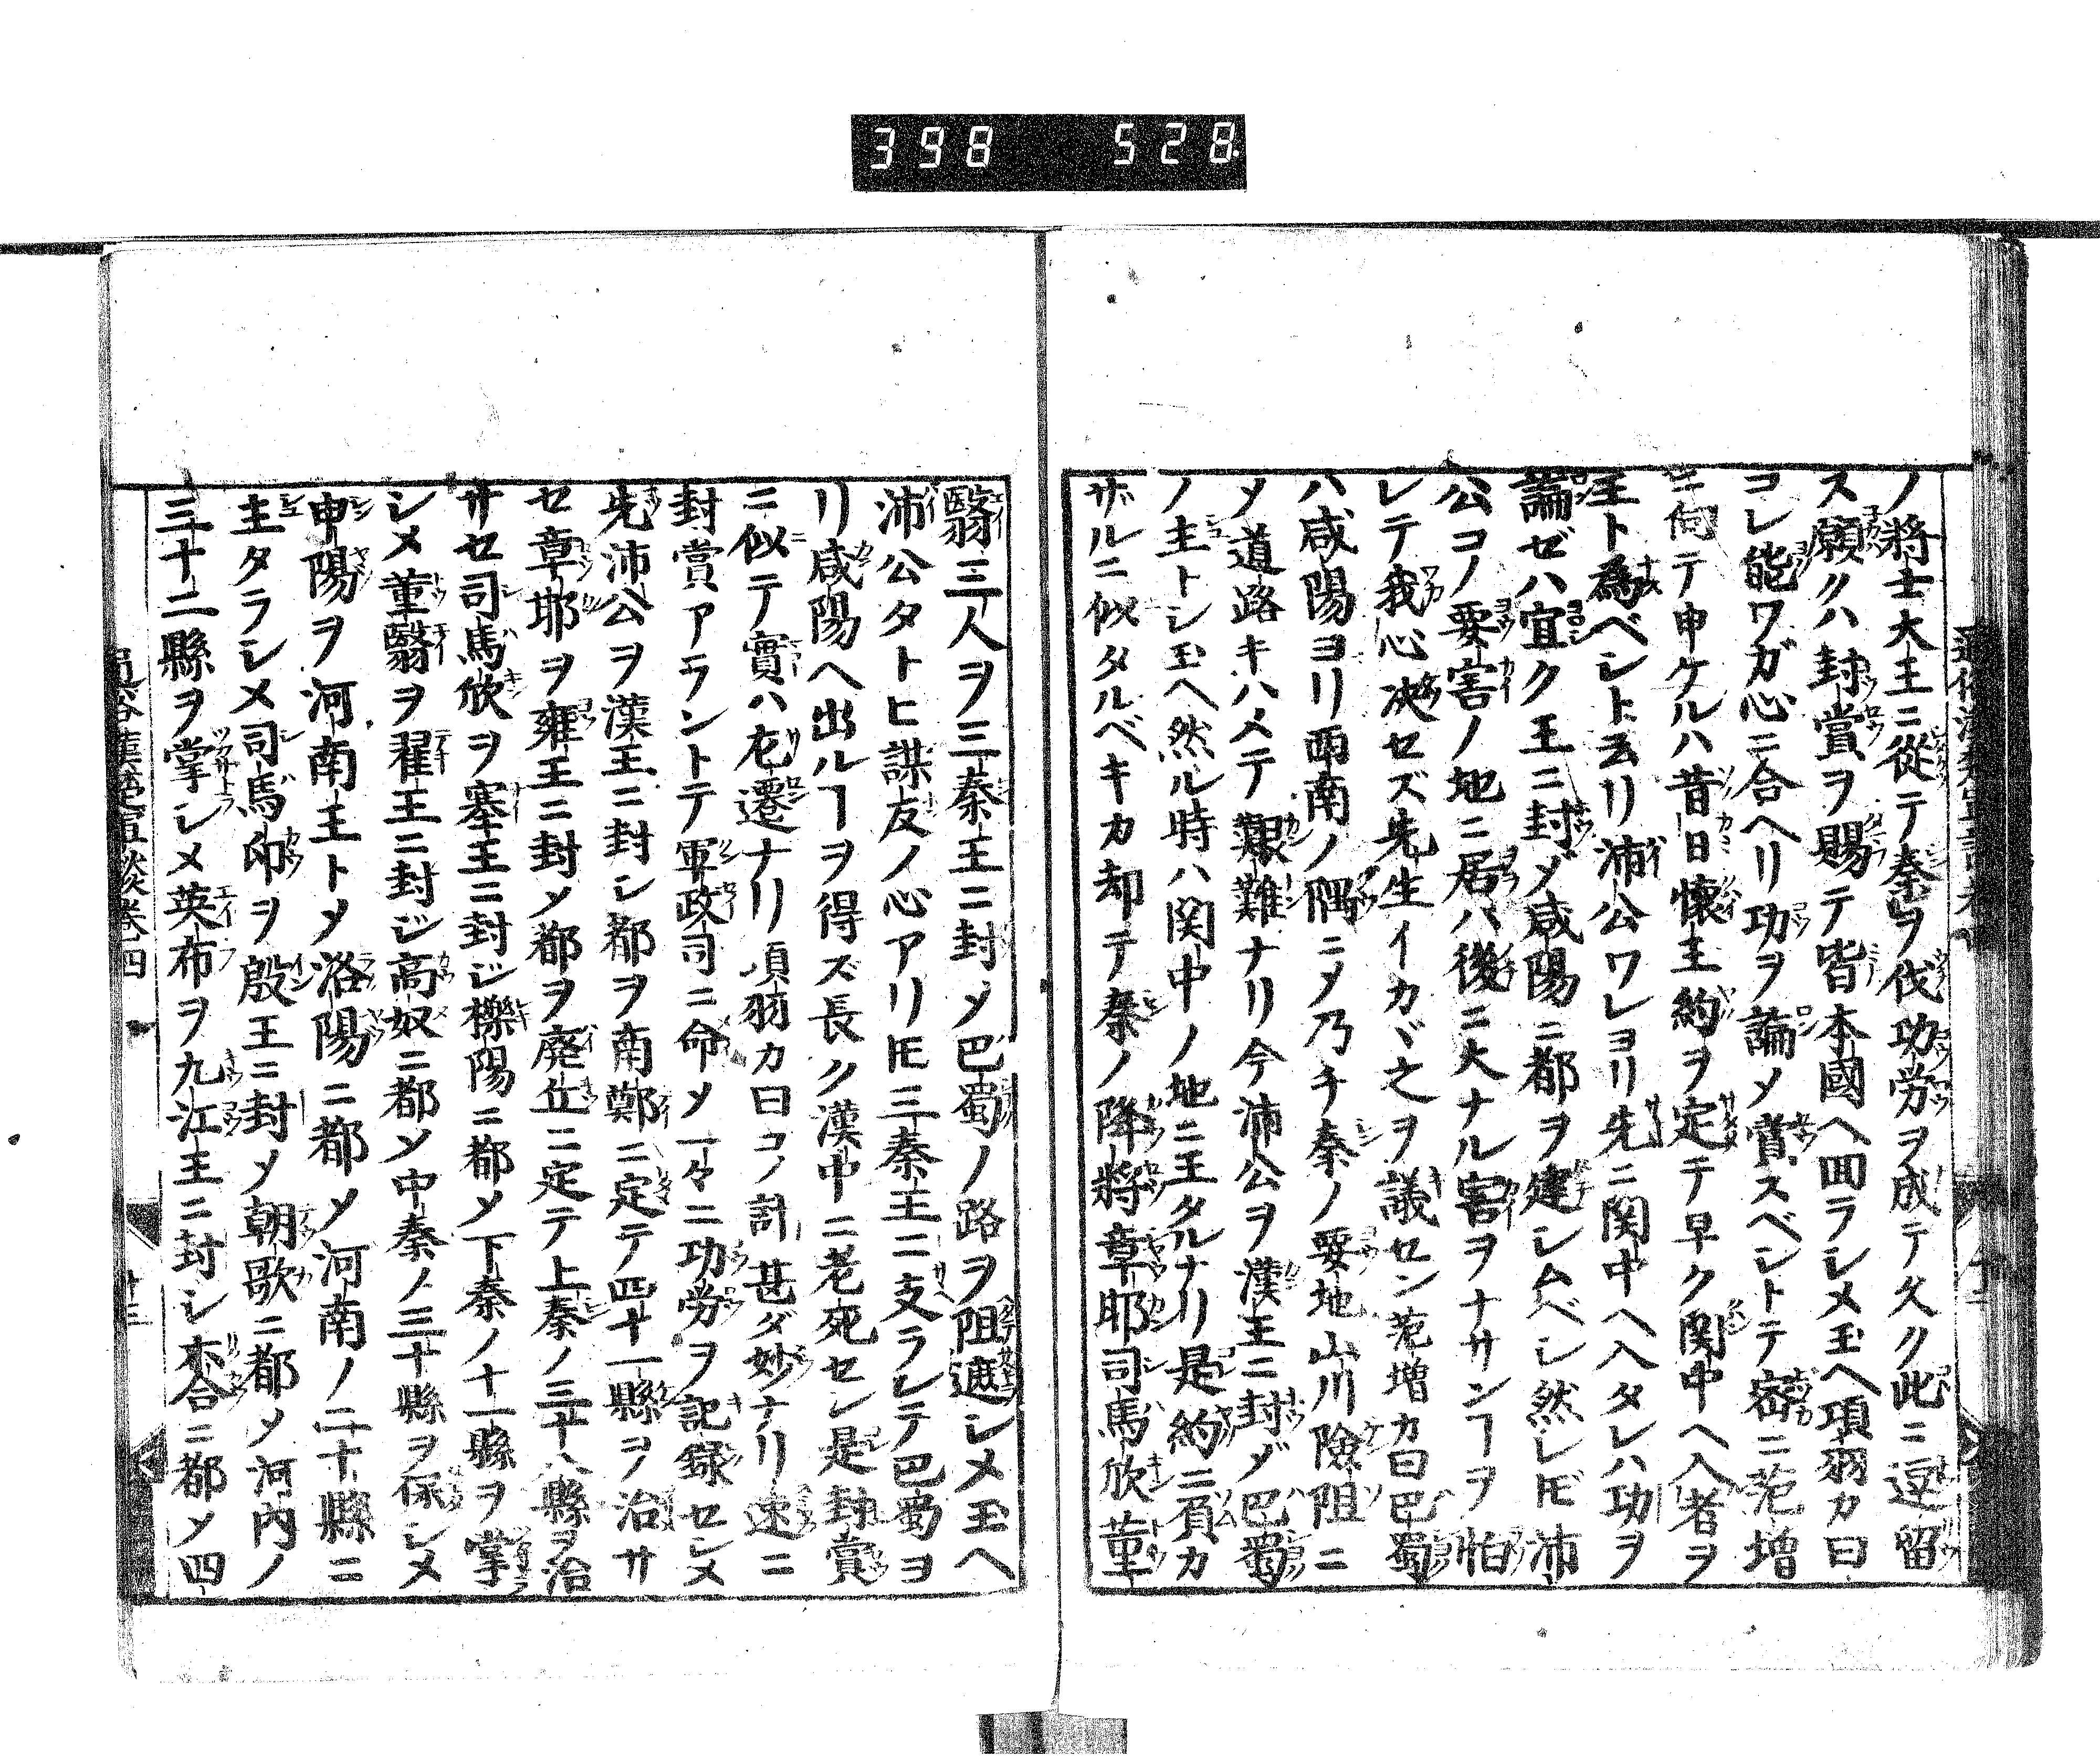 398 528.
ノ將士大王ニ從テ秦ヲ伐功労ヲ成テ久ク此ニ逗留
ス願クハ封賞ヲ賜テ皆本國ヘ回ラシメ玉ヘ項羽カ曰
コレ能ワガ心ニ合ヘリ功ヲ論メ賞スベシトテ密ニ范増
ニ向テ申ケルハ昔日懷王約ヲ定テ早ク関中ヘ入者ヲ
王ト爲ベシト云リ沛公ワレヨリ先ニ関中ヘ入タレハ功ヲ
論ゼハ宜ク王ニ封メ咸陽ニ都ヲ建シムベシ然レ𪜈沛
公コノ要害ノ地ニ居ハ後ニ大ナル害ヲナサンヿヲ怕
レテ我心决セズ先生イカヾ之ヲ議セン范増カ曰巴蜀
ハ咸陽ヨリ西南ノ隅ニメ乃チ秦ノ要地山川險阻ニ
メ道路キハメテ艱難ナリ今沛公ヲ漢王ニ封メ巴蜀
ノ主トシ玉ヘ然ル時ハ関中ノ地ニ王タルナリ是約ニ負カ
ザルニ似タルベキカ却テ秦ノ降將章耶司馬欣董
翳三人ヲ三秦王ニ封メ巴蜀ノ路ヲ阻遮シメ玉ヘ
沛公タトヒ謀友ノ心アリ𪜈三秦王ニ支ラレテ巴蜀ヨ
リ咸陽ヘ出ルヿヲ得ズ長ク漢中ニ老死セン是封賞
ニ似テ實ハ左遷ナリ項羽カ曰コノ計甚ダ妙ナリ速ニ
封賞アラントテ軍政司ニ命メ一々ニ功労ヲ記録セシメ
先沛公ヲ漢王ニ封シ都ヲ南鄭ニ定テ四十一縣ヲ治サ
セ章耶ヲ雍王ニ封メ都ヲ廃丘ニ定テ上秦ノ三十八縣ヲ治
サセ司馬欣ヲ塞王ニ封ジ櫟陽ニ都メ下秦ノ十一縣ヲ掌
シメ董翳ヲ翟王ニ封ジ高奴ニ都メ中秦ノ三十縣ヲ保シメ
申陽ヲ河南王トメ洛陽ニ都メ河南ノ二十縣ニ
主タラシメ司馬卬ヲ殷王ニ封メ朝歌ニ都メ河内ノ
三十二縣ヲ掌シメ英布ヲ九江王ニ封シ六合ニ都メ四
通俗漢楚軍談巻四 廿三